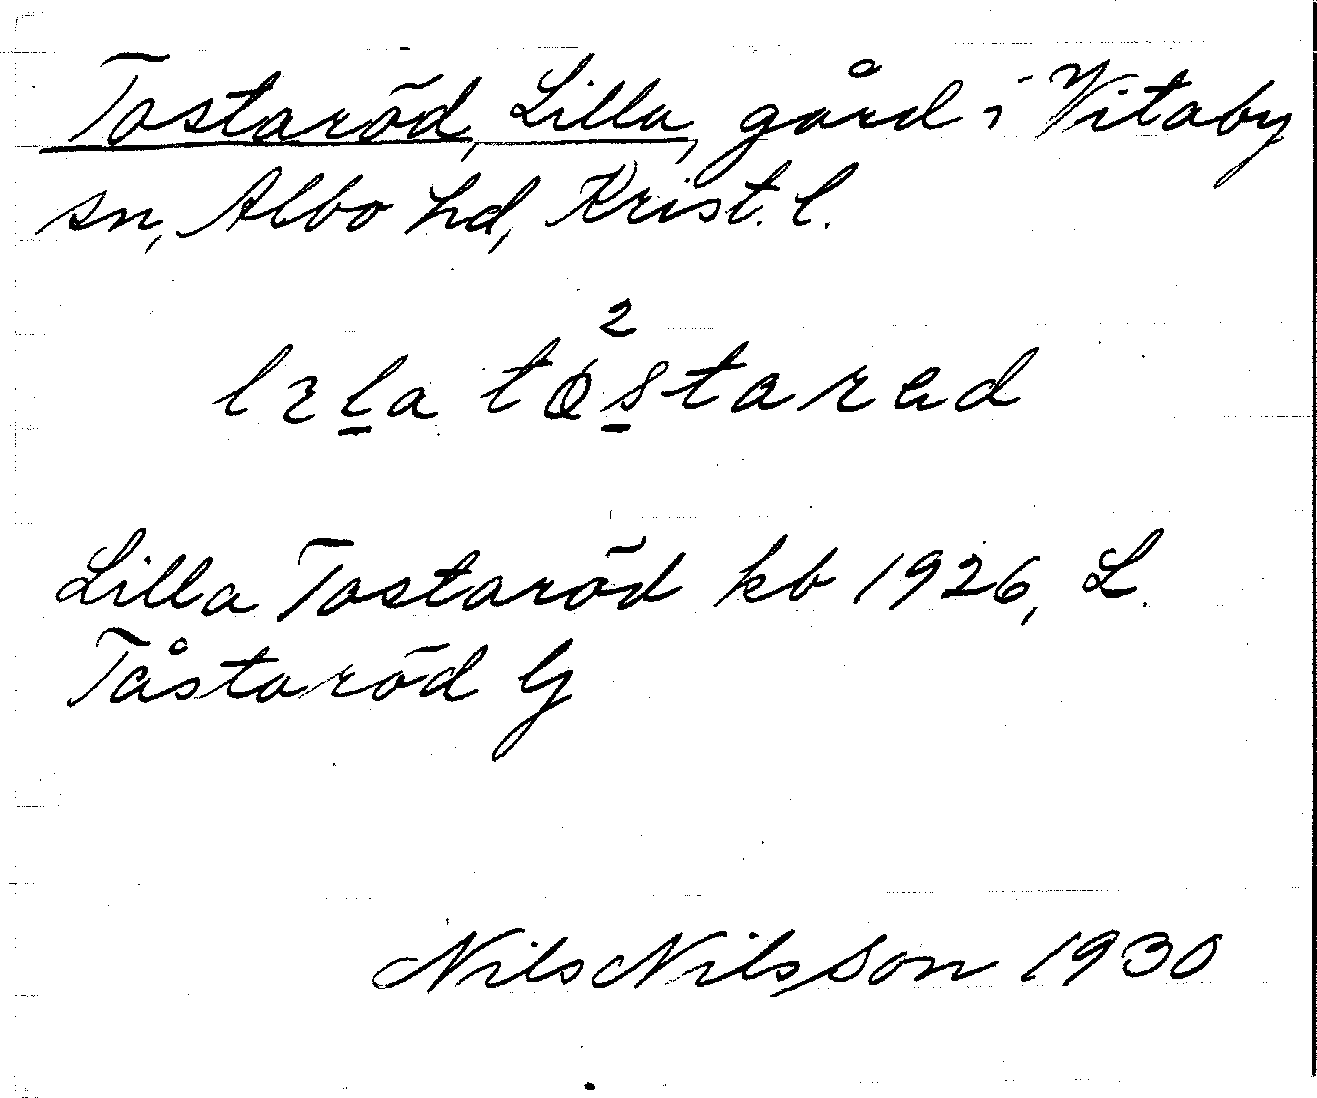 Tostaröd, Lilla, gård i Vitaby
sn, Albo hd, Krist. l.
2
lɪl̠a tɔs̠tared
Lilla Tostaröd kb 1926, L.
Tåstaröd G
Nils Nilsson 1930